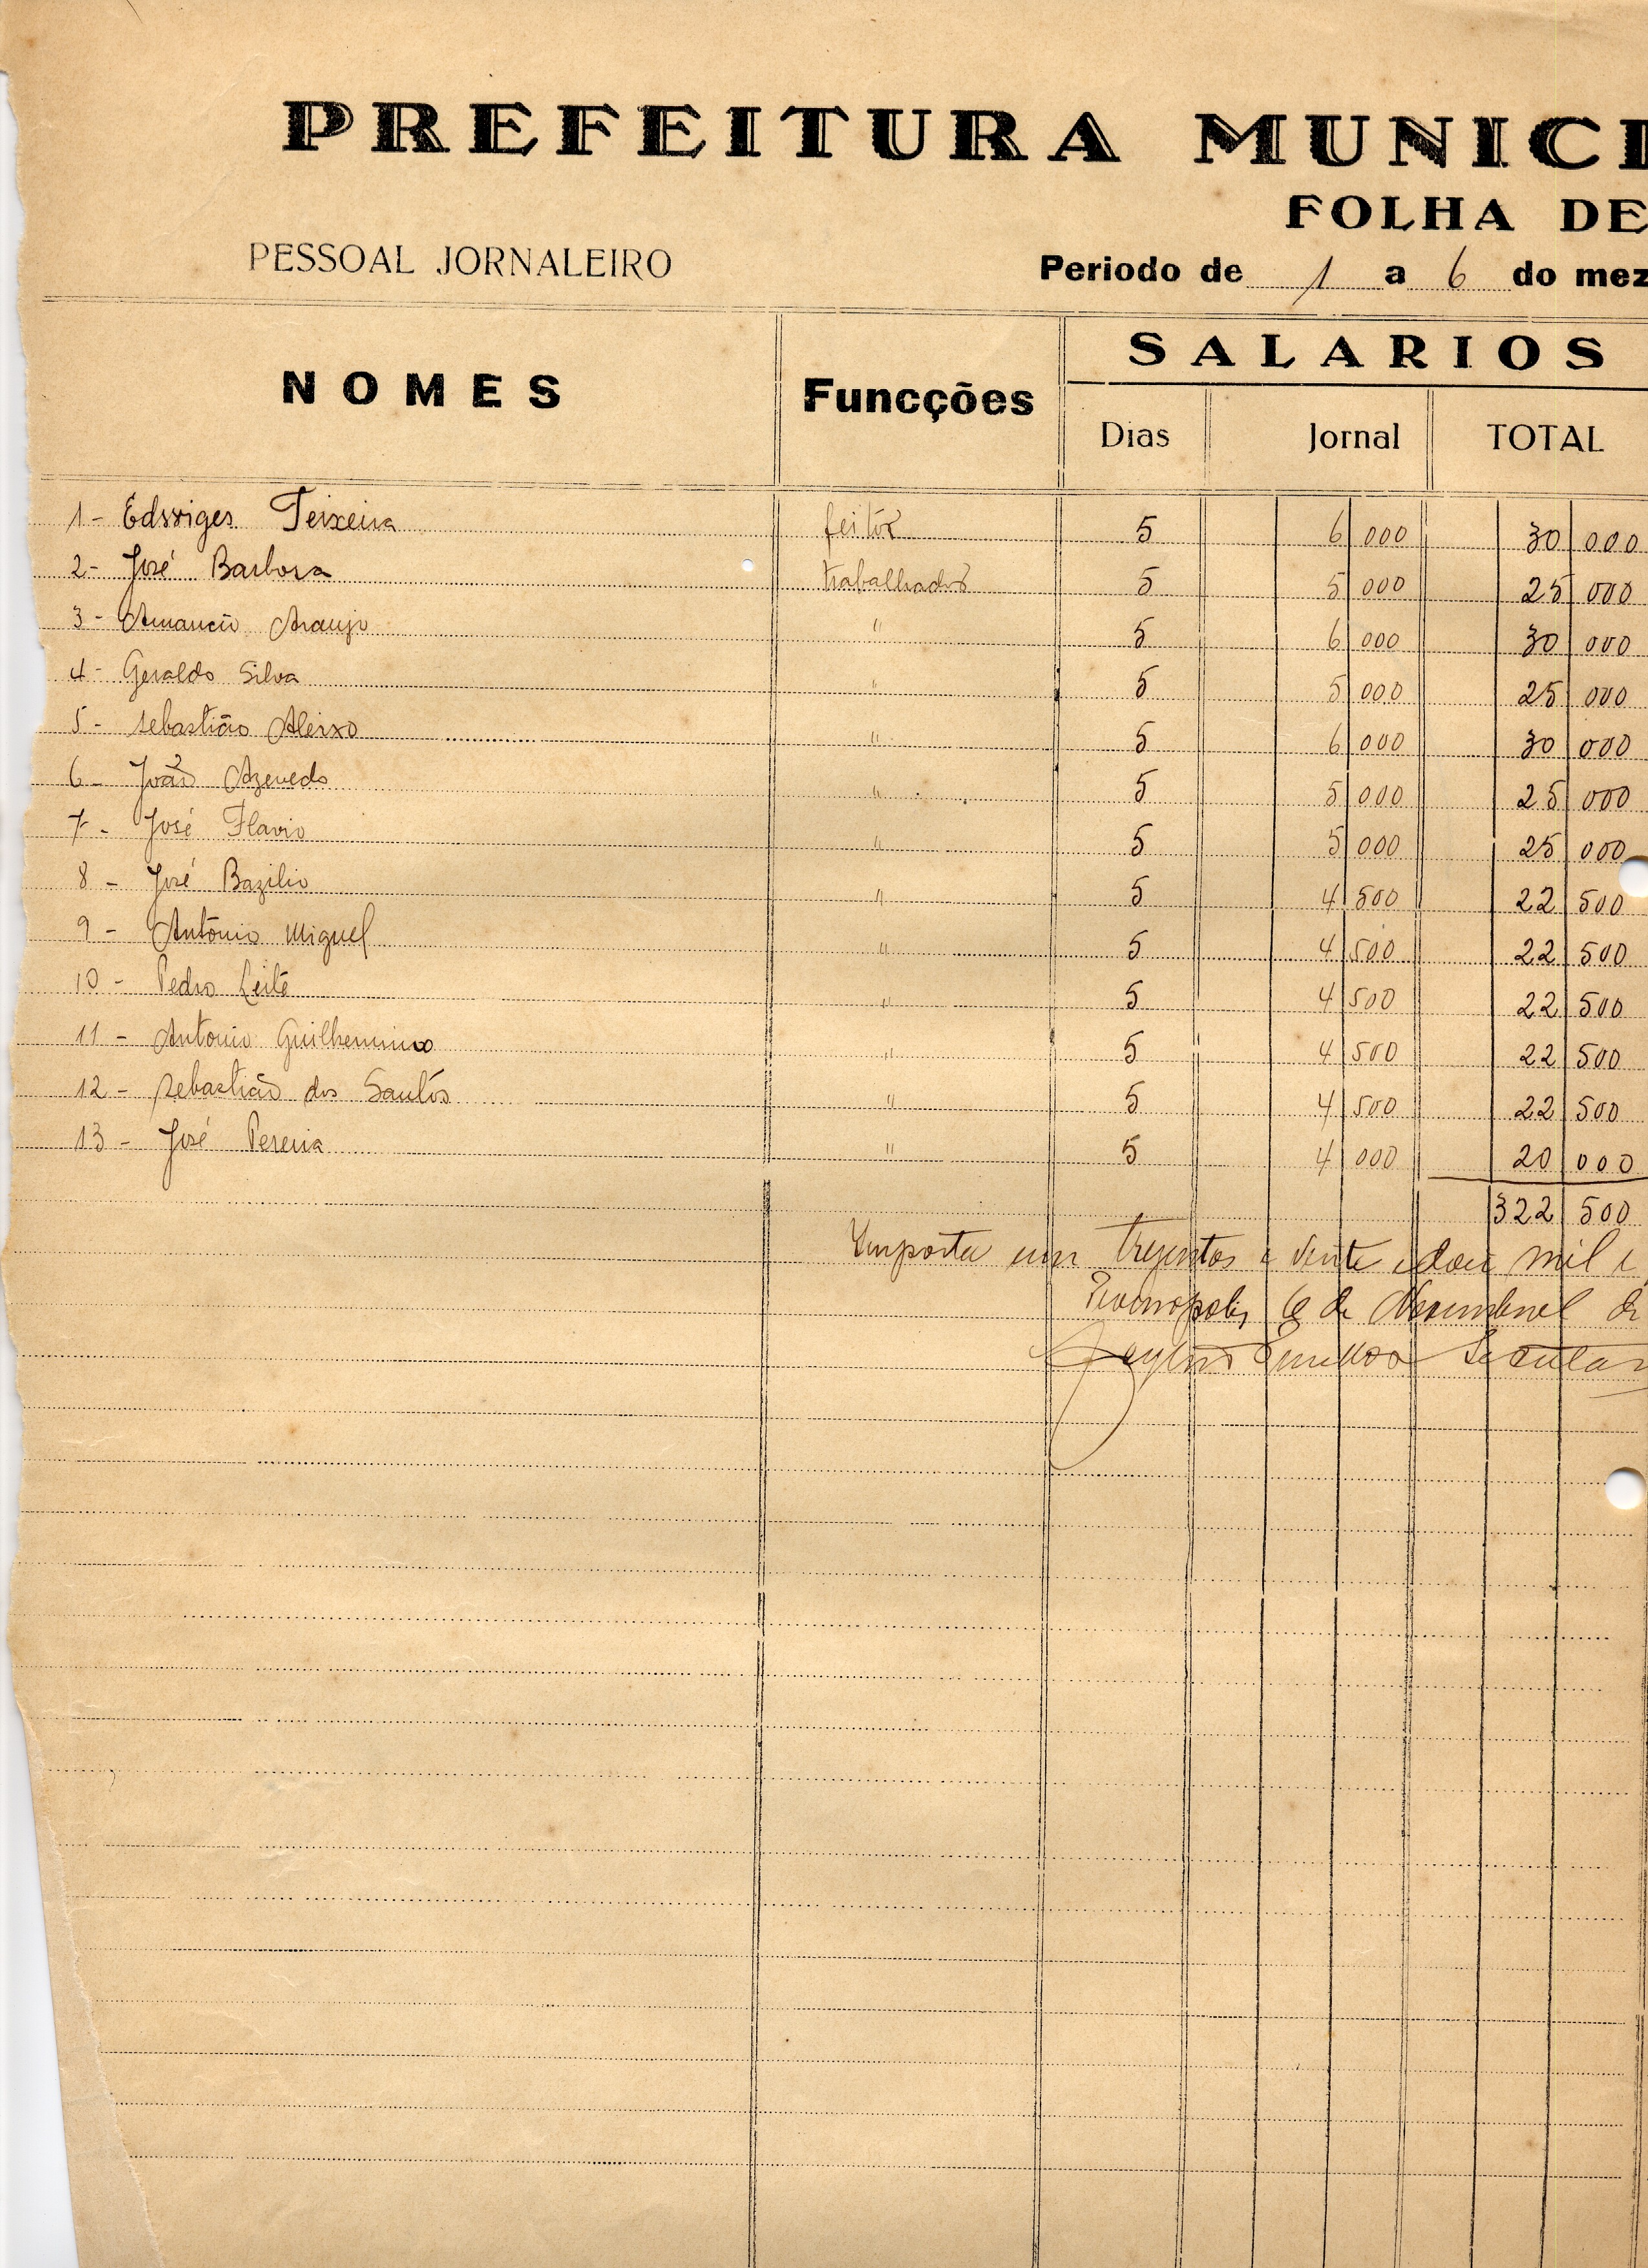 PREFEITURA MUNICI
FOLHA DE
PESSOAL JORNALEIRO
Periodo de 1 a 6 do mez
NOMES Funcções SALARIOS
Dias Jornal TOTAL
1- Edwiges Teixeira feitor 5 6 000 30 000
2- José Barbosa trabalhador 5 5 000 25 000
3- Amancio Araujo " 5 6 000 30 000
4- Geraldo Silva " 5 5 000 25 000
5- Sebastião Aleixo " 5 6 000 30 000
6- João Azevedo " 5 5 000 25 000
7- José Flavio " 5 5 000 25 000
8- José Bazilio " 5 4 500 22 500
9- Antônio Miguel " 5 4 500 22 500
10- Pedro Leite " 5 4 500 22 500
11- Antonio Guilhermino " 5 4 500 22 500
12- Sebastião dos Santos " 5 4 500 22 500
13- José Pereira " 5 4 000 20 000
322 500
Importa em trezentos e vinte e dois mil e
6 de Novembro de